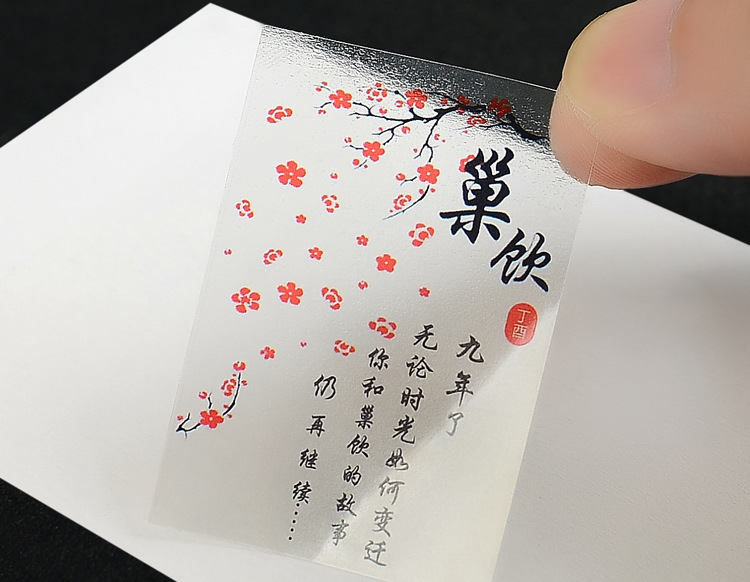 巢饮
丁酉
九年了
无论时光如何变迁
你和巢饮的故事
仍再继续……